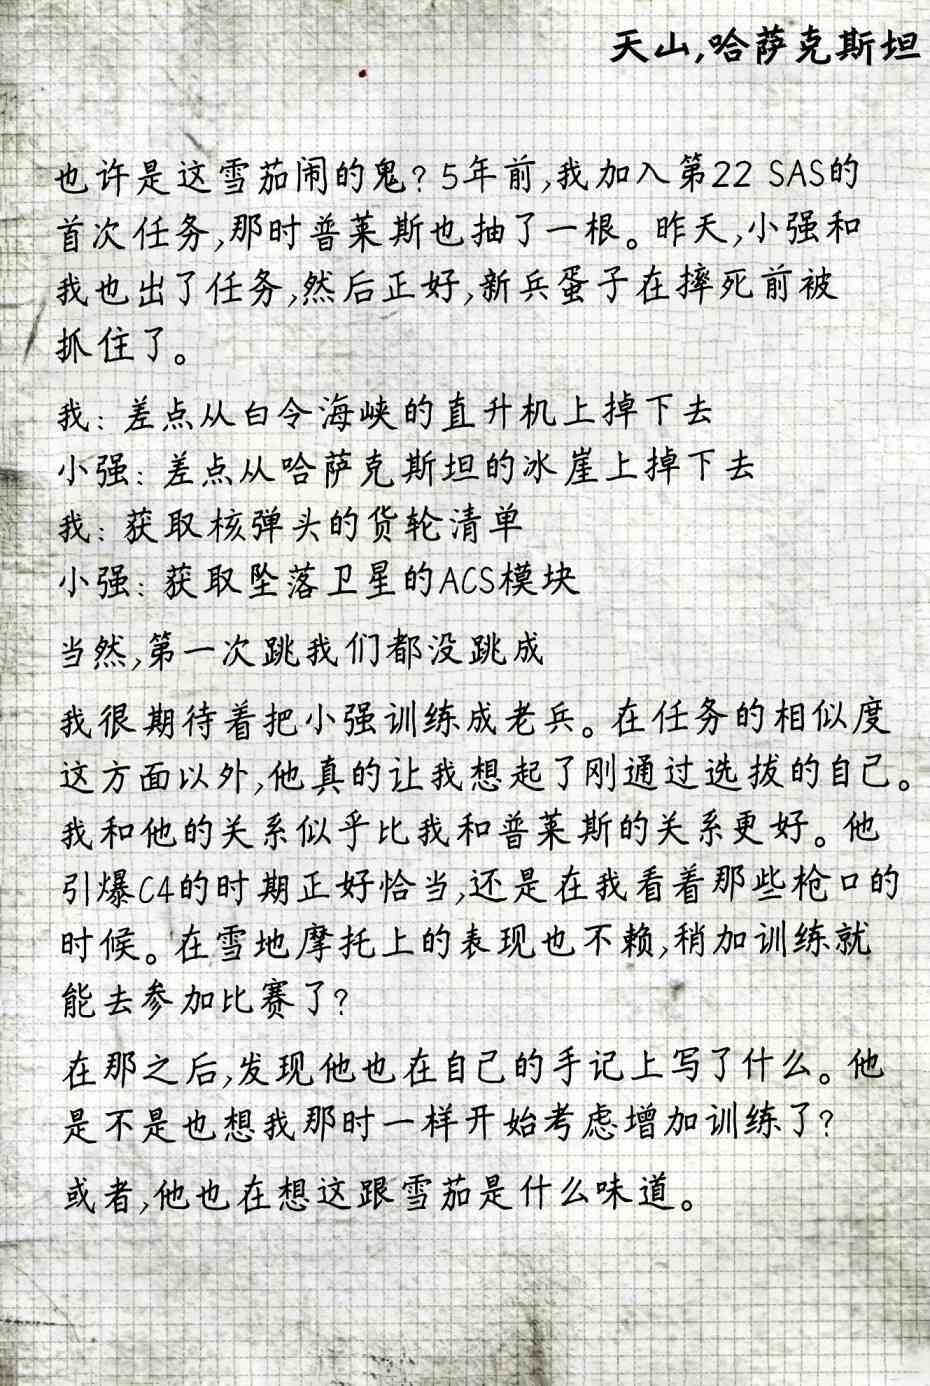 天山,哈萨克斯坦
也许是这雪茄闹的鬼? 5年前,我加入第22 SAS的
首次任务,那时普莱斯也抽了一根。昨天,小强和
我也出了任务,然后正好,新兵蛋子在摔死前被
抓住了。
我: 差点从白令海峡的直升机上掉下去
小强: 差点从哈萨克斯坦的冰崖上掉下去
我: 获取核弹头的货轮清单
小强: 获取坠落卫星的ACS模块
当然,第一次跳我们都没跳成
我很期待着把小强训练成老兵。在任务的相似度
这方面以外,他真的让我想起了刚通过选拔的自己。
我和他的关系似乎比我和普莱斯的关系更好。他
引爆C4的时期正好恰当,还是在我看着那些枪口的
时候。在雪地摩托上的表现也不赖,稍加训练就
能去参加比赛了?
在那之后,发现他也在自己的手记上写了什么。他
是不是也想我那时一样开始考虑增加训练了?
或者,他也在想这跟雪茄是什么味道。